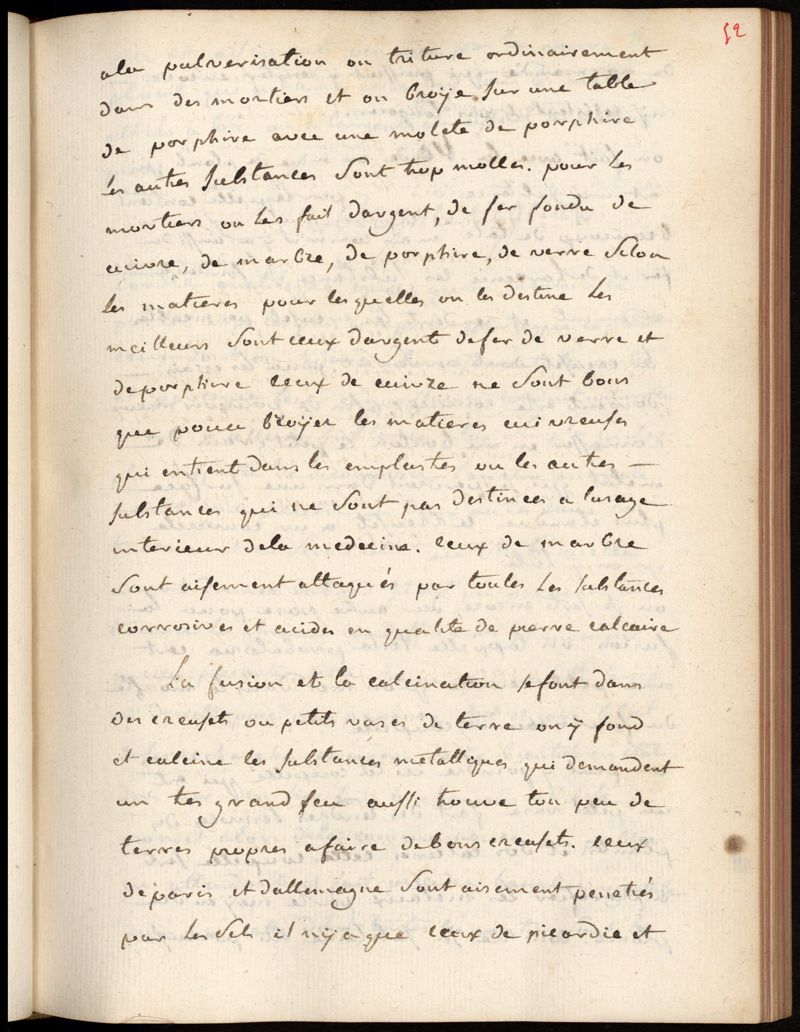 52
ala pulverisation on triture ordinairement
dans des mortiers et on broÿe sur une table
de porphire avec une molete de porphire
les autres substances sont trop molles. pour les
mortiers on les fait dargent, de fer fondu de
cuivre, de marbre, de porphire, de verre selon
les matieres pour lesquelles on les destine les
meilleurs sont ceux dargent defer de verre et
deporphire ceux de cuivre ne sont bons
que pour broÿer les matieres cuivreuses
qui entrent dans les emplastres ou les autres —
substances qui ne sont pas destinées a lusage
interieur dela medecine. ceux de marbre
sont aisement attaqués par toutes les substances
corrosives et acides en qualite de pierre calcaire
La fusion et la calcination sefont dans
des creusets ou petits vases de terre on ÿ fond
et calcine les substances metalliques qui demandent
un tres grand feu aussi trouve ton peu de
terres propres afaire debons creusets. ceux
deparis et dallemagne sont aisement penetrés
par les sels il nÿ a que ceux de picardie et